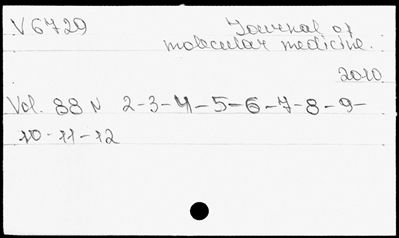 V6729 Journal of
molecular medicine.
2010
Vol. 88 N 2-3-4-5-6-7-8-9-
10-11-12